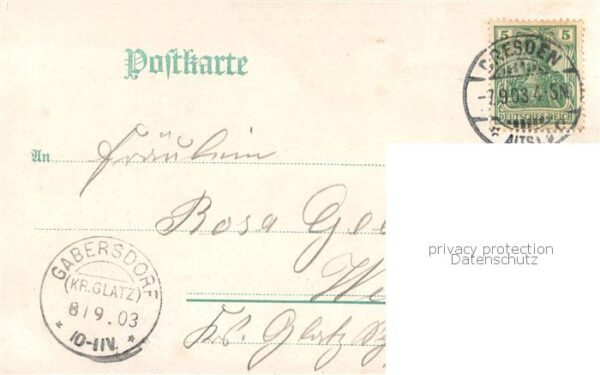 5 5
Postkarte
DRESDEN
7.9.03.4-5N
DEUTSCHES REICH
ALTST.
An Fräulein
Rosa
privacy protection
Datenschutz
GABERSDORF
(KR. GLATZ)
8/9.03
* 10-11V. *
Kr. Glatz